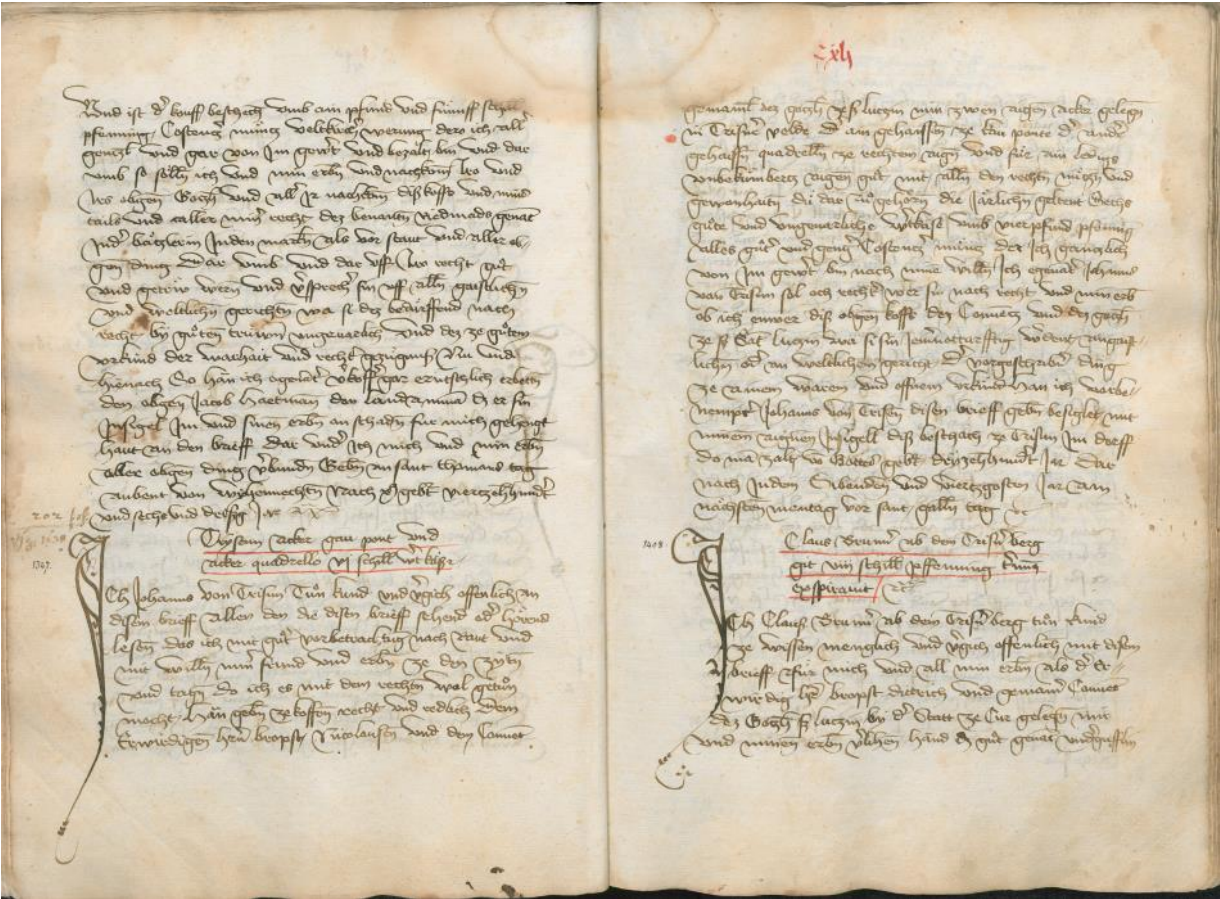 Vnd ist der kouff beschechen vmb ain pfund vnd fúnff schill
pfenning Costentzer múntz veltkircher werung dero ich aller
gentzl vnd gar von Im gewert vnd bezalt bin vnd dar
vmb so söllen ich vnd min erben vnd nachkomen Iro vnd
Irs obigen Gotzhus vnd aller Ir nachkomen diss koffs vnd mins
tails vnd aller miner recht dez benanten Riedmads genant
In der Inden marchen als vor staut vnd aller ob-
gen ding Dar vmb vnd dar vff Iro recht gůt
vnd getrúw wern vnd versprech sin vff allen gaistlichen
vnd weltlichen gerichten wa si dez bedürffend nach
recht by gůten trúwen vngeuarlich Vnd dez ze gůtem
vrkúnd der warhait vnd recht gezúgnuss Nu vnd
hienach So han ich egenanter verköffer gar ernstlich erbetten
den obigen Jacob Hartman den landamman dz er sin
Insigel Im vnd sinen erben an schaden fúr mich gehengt
haut an den brieff Dar vnder Ich mich vnd min erben
aller obigen ding verbunden Geben an sant thomans tag
aubent von wyhennechten Nach xpi gebt viertzehenhundert
vnd sechs vnd drissig Jar
1347
Trysen acker gan pont vnd
acker quadrello vj schill wert käss
Ich Johans von Trisun Tůn kund vnd vergich offenlich an
disem brieff allen den die disen brieff sehend oder hörend
lesen das ich mit gůter vorbetrachtug nach raut vnd
mit willen miner frúnd vnd erben ze den zyten
vnd tagen do ich es mit dem rechten wol getůn
mocht han geben ze koffen recht vnd redlich dem
Erwirdigen hern bropst Nicolausen vnd dem Conuent
Cxlj
gemainl dez gotzhus ze sant luczin min zwen aigen acker gelegen
in Trisuner velde der ain gehaissen ze dem ponte der ander
gehaissen quadrellen ze rechtem aigen vnd fúr ain ledigs
vnbekúmbertz aigen gůt mit allen den rechten nutzen vnd
gewonhaiten dú dar zů gehörn die järlichen geltent Sechs
gůte vnd vngeuarliche wertkäs vmb vier pfund pfening
alles gůter vnd genger Costentzer múntz der Ich gentzlich
von Im gewert bin nach mine willen Ich egenanter Johans
von Trisun sol och rechter wer sin nach recht vnd min erben
ob ich enwer diss obigen koffs dez Conuentz vnd dez gotzhus
ze sant luczin wa si sin Jemer notturfftig werdent an gaist-
lichem oder an weltlichem gericht Der vorgeschriben ding
ze ainem waren vnd offnem vrkúnd Han ich vorbe-
nempter Johans von Trisen disen brieff geben besiglet mit
minem aigenen Insigell diss beschach ze Trisun Im dorff
do ma zalt vo Gottes gebt drúzehenhundert Jar dar
nach In dem Sibenden vnd viertzgosten Jar am
nächsten mentag vor sant gallen tag etc
1408
Claus Brunner ab dem Trisner berg
git viii schill pfenning termini
expiraint etc
Ich Claus Brunner ab dem Trisner berg tůn kund
ze wissen menglich vnd vergich offenlich mit disem
brieff fúr mich vnd all min erben als der Er-
wirdig her bropst dietrich vnd gemainer Conuent
dez Gotzhus sant luczin by der Statt ze Cur gelegen mir
vnd minen erben verlihen hand dz gůt genant